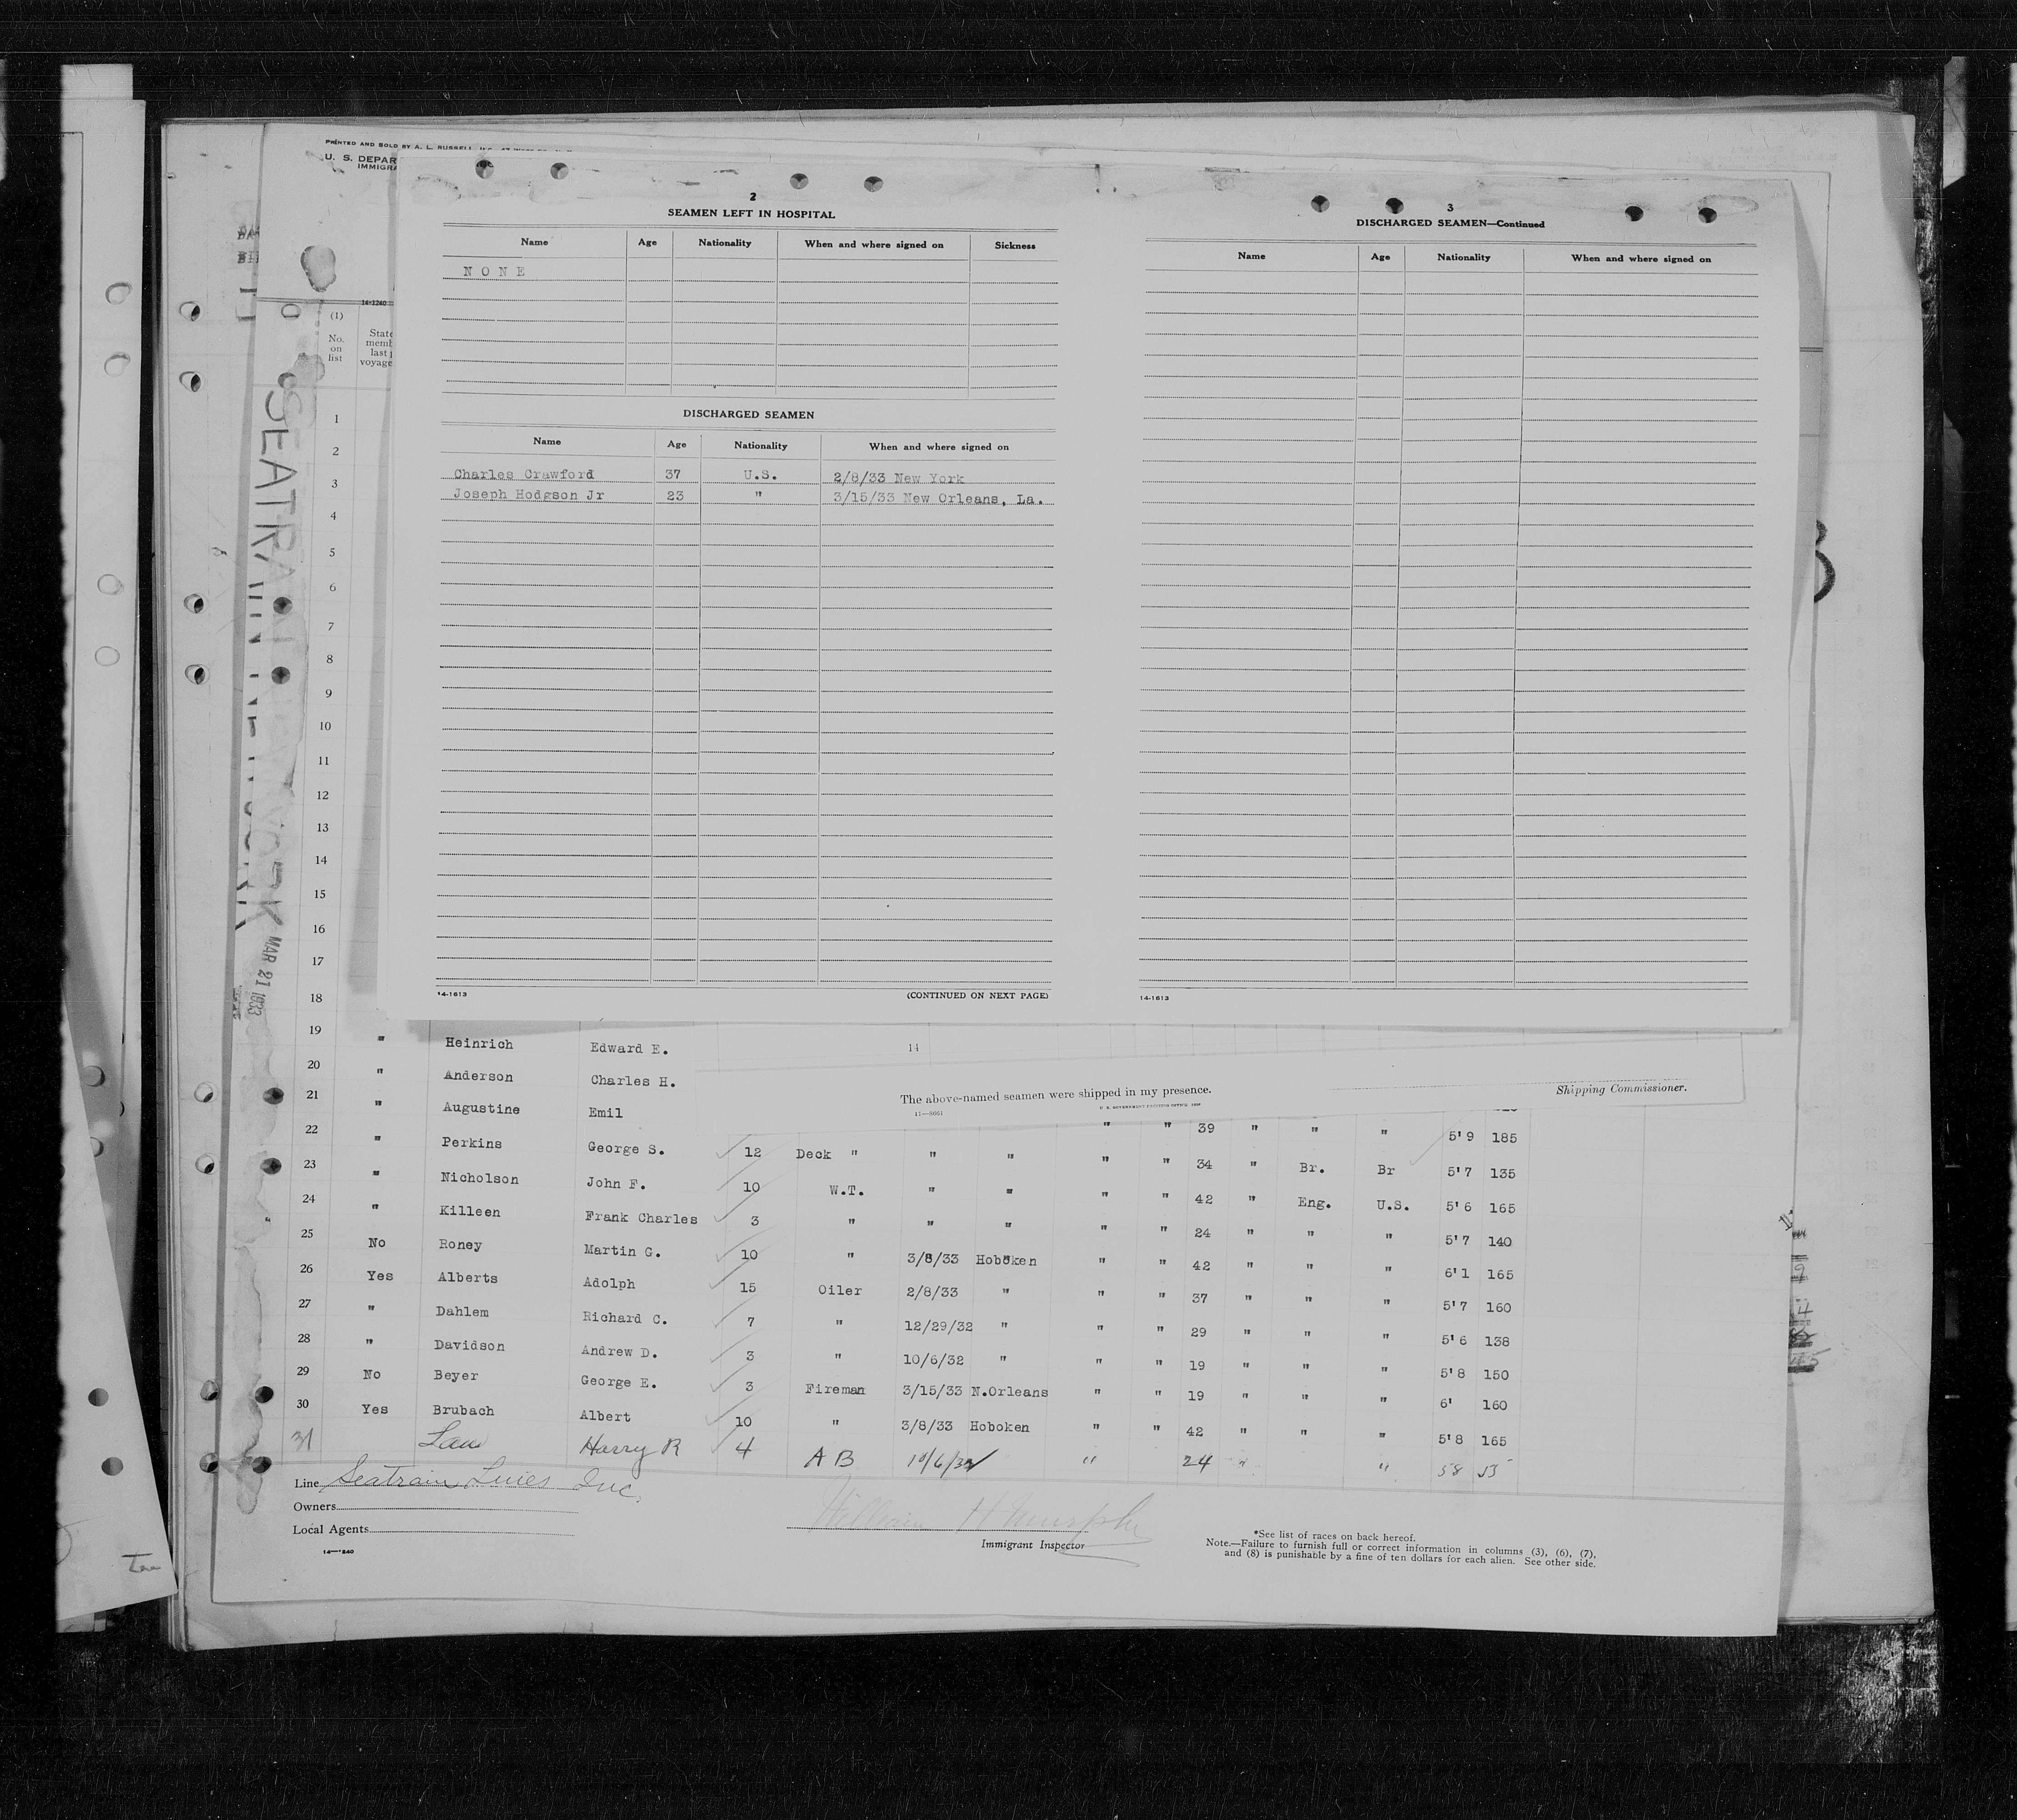 PRINTED AND SOLD BY A. L. RUSSELL
U. S. DEPAR
IMMIGRA
2
SEAMEN LEFT IN HOSPITAL
Name Age Nationality When and where signed on Sickness
NONE
DISCHARGED SEAMEN
Name Age Nationality When and where signed on
Charles Crawford 37 U.S. 2/8/33 New York
Joseph Hodgson Jr 23 " 3/15/33 New Orleans, La.
14-1613 (CONTINUED ON NEXT PAGE)
3
DISCHARGED SEAMEN—Continued
Name Age Nationality When and where signed on
14-1613
14-1240
(1)
No. on list
State
memb
last
voyage
SEATRAIN NEW YORK MAR 21 1933
1
2
3
4
5
6
7
8
9
10
11
12
13
14
15
16
17
18
19 " Heinrich Edward E. 14
20 " Anderson Charles H.
21 " Augustine Emil
The above-named seamen were shipped in my presence. Shipping Commissioner.
" " 39 " " " 5'9 185
22 " Perkins George S. 12 Deck " " " " " 34 " Br. Br 5'7 135
23 " Nicholson John F. 10 W.T. " " " " 42 " Eng. U.S. 5'6 165
24 " Killeen Frank Charles 3 " " " " " 24 " " " 5'7 140
25 No Roney Martin G. 10 " 3/8/33 Hoboken " " 42 " " " 6'1 165
26 Yes Alberts Adolph 15 Oiler 2/8/33 " " " 37 " " " 5'7 160
27 " Dahlem Richard C. 7 " 12/29/32 " " " 29 " " " 5'6 138
28 " Davidson Andrew D. 3 " 10/6/32 " " " 19 " " " 5'8 150
29 No Beyer George E. 3 Fireman 3/15/33 N.Orleans " " 19 " " " 6' 160
30 Yes Brubach Albert 10 " 3/8/33 Hoboken " " 42 " " " 5'8 165
31 Harry R 4 A B 10/6/32 " 24 " " 58
Line Seatrain Lines Inc.
Owners
Local Agents
14—1240
William H Murphy
Immigrant Inspector
*See list of races on back hereof.
Note.—Failure to furnish full or correct information in columns (3), (6), (7),
and (8) is punishable by a fine of ten dollars for each alien. See other side.